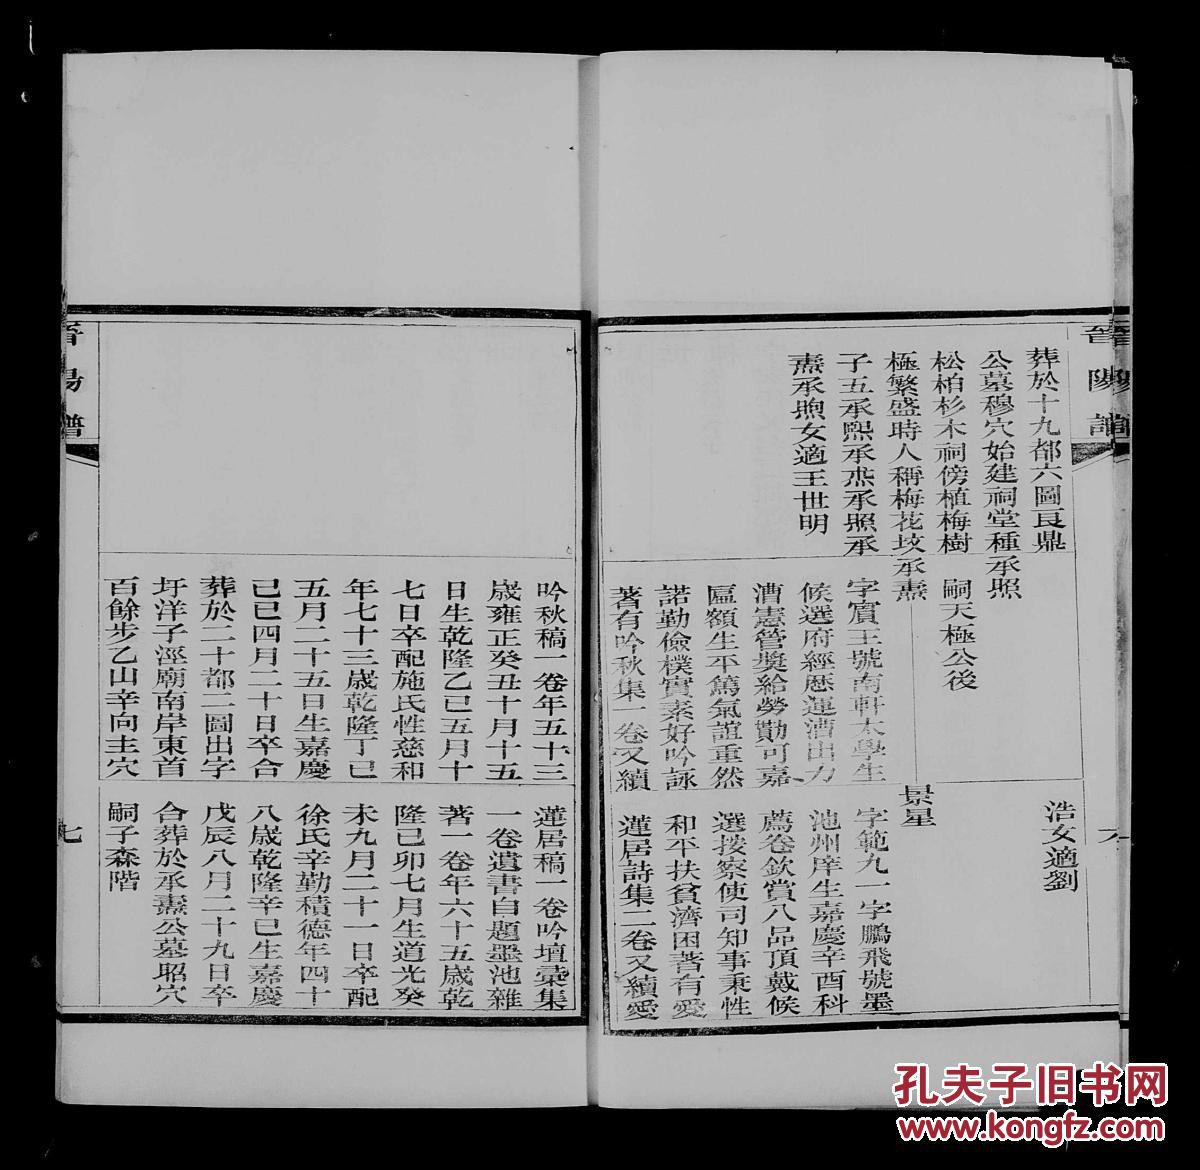 晉陽譜
葬於十九都六圖艮鼎
公墓穆穴始建祠堂種
松柏杉木祠傍植梅樹
極繁盛時人稱梅花坟
子五承熙承烝承照承
燾承煦女適王世明
承照
嗣天極公後
承燾
字賔王號南軒太學生
候選府經歴運漕出力
漕憲管奬給勞勩可嘉
匾額生平篤氣誼重然
諾勤儉樸實素好吟詠
著有吟秋集一卷又續
浩女適劉
景星
字範九一字鵬飛號墨
池州庠生嘉慶辛酉科
薦卷欽賞八品頂戴候
選按察使司知事秉性
和平扶貧濟困著有愛
蓮居詩集二卷又續愛
六
吟秋稿一卷年五十三
歲雍正癸丑十月十五
日生乾隆乙巳五月十
七日卒配施氏性慈和
年七十三歲乾隆丁巳
五月二十五日生嘉慶
己巳四月二十日卒合
葬於二十都二圖出字
圩洋子涇廟南岸東首
百餘步乙山辛向主穴
蓮居稿一卷吟壇彙集
一卷遺書自題墨池雜
著一卷年六十五歲乾
隆己卯七月生道光癸
未九月二十一日卒配
徐氏辛勤積德年四十
八歲乾隆辛巳生嘉慶
戊辰八月二十九日卒
合葬於承燾公墓昭穴
嗣子森階
晉陽譜
七
孔夫子旧书网
www.kongfz.com